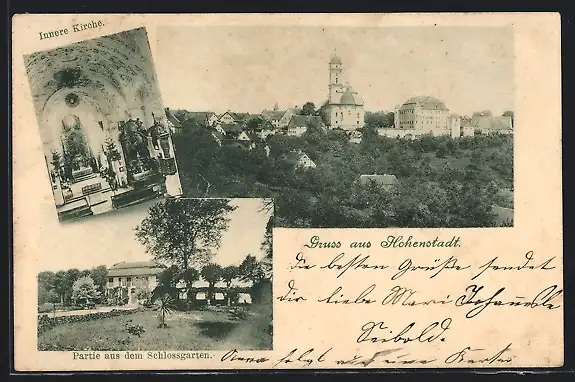 Innere Kirche.
Gruss aus Hohenstadt.
Die besten Grüße sendet
dir liebe Mari Johanele
Seibold.
Partie aus dem Schlossgarten.
Anna folgt auf eine Karte